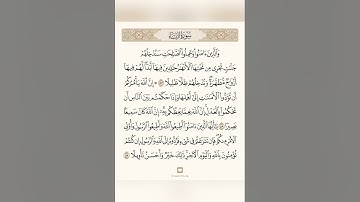 سُورَةُ النِّسَاءِ
وَٱلَّذِينَ ءَامَنُوا۟ وَعَمِلُوا۟ ٱلصَّـٰلِحَـٰتِ سَنُدْخِلُهُمْ
جَنَّـٰتٍ تَجْرِى مِن تَحْتِهَا ٱلْأَنْهَـٰرُ خَـٰلِدِينَ فِيهَآ أَبَدًا لَّهُمْ فِيهَآ
أَزْوَٰجٌ مُّطَهَّرَةٌ وَنُدْخِلُهُمْ ظِلًّا ظَلِيلًا ۝٥٧ ۞ إِنَّ ٱللَّهَ يَأْمُرُكُمْ
أَن تُؤَدُّوا۟ ٱلْأَمَـٰنَـٰتِ إِلَىٰٓ أَهْلِهَا وَإِذَا حَكَمْتُم بَيْنَ ٱلنَّاسِ أَن
تَحْكُمُوا۟ بِٱلْعَدْلِ إِنَّ ٱللَّهَ نِعِمَّا يَعِظُكُم بِهِۦٓ إِنَّ ٱللَّهَ كَانَ سَمِيعًۢا
بَصِيرًا ۝٥٨ يَـٰٓأَيُّهَا ٱلَّذِينَ ءَامَنُوٓا۟ أَطِيعُوا۟ ٱللَّهَ وَأَطِيعُوا۟ ٱلرَّسُولَ وَأُو۟لِى
ٱلْأَمْرِ مِنكُمْ فَإِن تَنَـٰزَعْتُمْ فِى شَىْءٍ فَرُدُّوهُ إِلَى ٱللَّهِ وَٱلرَّسُولِ إِن كُنتُمْ
تُؤْمِنُونَ بِٱللَّهِ وَٱلْيَوْمِ ٱلْـَٔاخِرِ ذَٰلِكَ خَيْرٌ وَأَحْسَنُ تَأْوِيلًا ۝٥٩